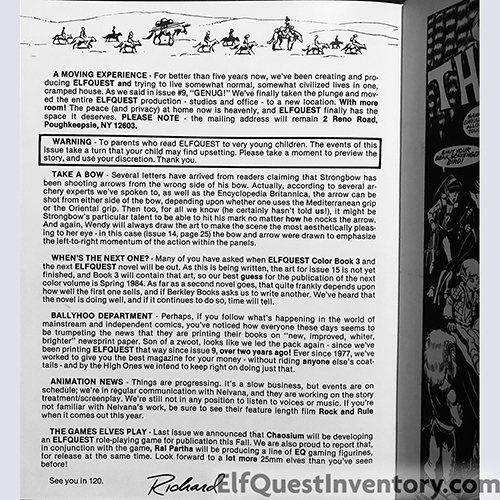 A MOVING EXPERIENCE - For better than five years now, we've been creating and pro-
ducing ELFQUEST and trying to live somewhat normal, somewhat civilized lives in one,
cramped house. As we said in issue #9, "GENUG!" We've finally taken the plunge and mov-
ed the entire ELFQUEST production - studios and office - to a new location. With more
room! The peace (and privacy) at home now is heavenly, and ELFQUEST finally has the
space it deserves. PLEASE NOTE - the mailing address will remain 2 Reno Road,
Poughkeepsie, NY 12603.
WARNING - To parents who read ELFQUEST to very young children. The events of this
issue take a turn that your child may find upsetting. Please take a moment to preview the
story, and use your discretion. Thank you.
TAKE A BOW - Several letters have arrived from readers claiming that Strongbow has
been shooting arrows from the wrong side of his bow. Actually, according to several ar-
chery experts we've spoken to, as well as the Encyclopedia Britannica, the arrow can be
shot from either side of the bow, depending upon whether one uses the Mediterranean grip
or the Oriental grip. Then too, for all we know (he certainly hasn't told us!), it might be
Strongbow's particular talent to be able to hit his mark no matter how he nocks the arrow.
And again, Wendy will always draw the art to make the scene the most aesthetically pleas-
ing to her eye - in this case (issue 14, page 25) the bow and arrow were drawn to emphasize
the left-to-right momentum of the action within the panels.
WHEN'S THE NEXT ONE? - Many of you have asked when ELFQUEST Color Book 3 and
the next ELFQUEST novel will be out. As this is being written, the art for issue 15 is not yet
finished, and Book 3 will contain that art, so our best guess for the publication of the next
color volume is Spring 1984. As far as a second novel goes, that quite frankly depends upon
how well the first one sells, and if Berkley Books asks us to write another. We've heard that
the novel is doing well, and if it continues to do so, time will tell.
BALLYHOO DEPARTMENT - Perhaps, if you follow what's happening in the world of
mainstream and independent comics, you've noticed how everyone these days seems to
be trumpeting the news that they are printing their books on "new, improved, whiter,
brighter" newsprint paper. Son of a zwoot, looks like we led the pack again - since we've
been printing ELFQUEST that way since issue 9, over two years ago! Ever since 1977, we've
worked to give you the best magazine for your money - without riding anyone else's coat-
tails - and by the High Ones we intend to keep right on doing just that.
ANIMATION NEWS - Things are progressing. It's a slow business, but events are on
schedule; we're in regular communication with Nelvana, and they are working on the story
treatment/screenplay. We're still not in any position to listen to voices or music. If you're
not familiar with Nelvana's work, be sure to see their feature length film Rock and Rule
when it comes out this year.
THE GAMES ELVES PLAY - Last issue we announced that Chaosium will be developing
an ELFQUEST role-playing game for publication this Fall. We are also proud to report that,
in conjunction with the game, Ral Partha will be producing a line of EQ gaming figures,
for release at the same time. Look forward to a lot more 25mm elves than you've seen
before!
See you in 120.
Richard
ElfQuestInventory.com